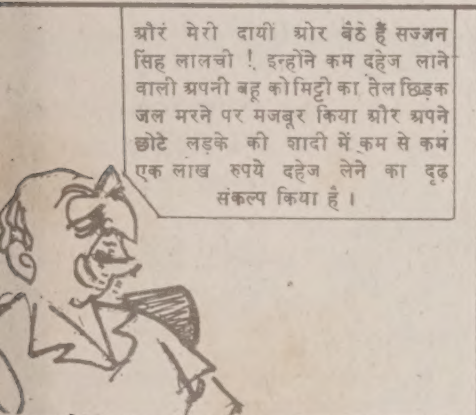 और मेरी दायीं ओर बैठे हैं सज्जन
सिंह लालची ! इन्होंने कम दहेज लाने
वाली अपनी बहू को मिट्टी का तेल छिड़क
जल मरने पर मजबूर किया और अपने
छोटे लड़के की शादी में कम से कम
एक लाख रुपये दहेज लेने का दृढ़
संकल्प किया है ।